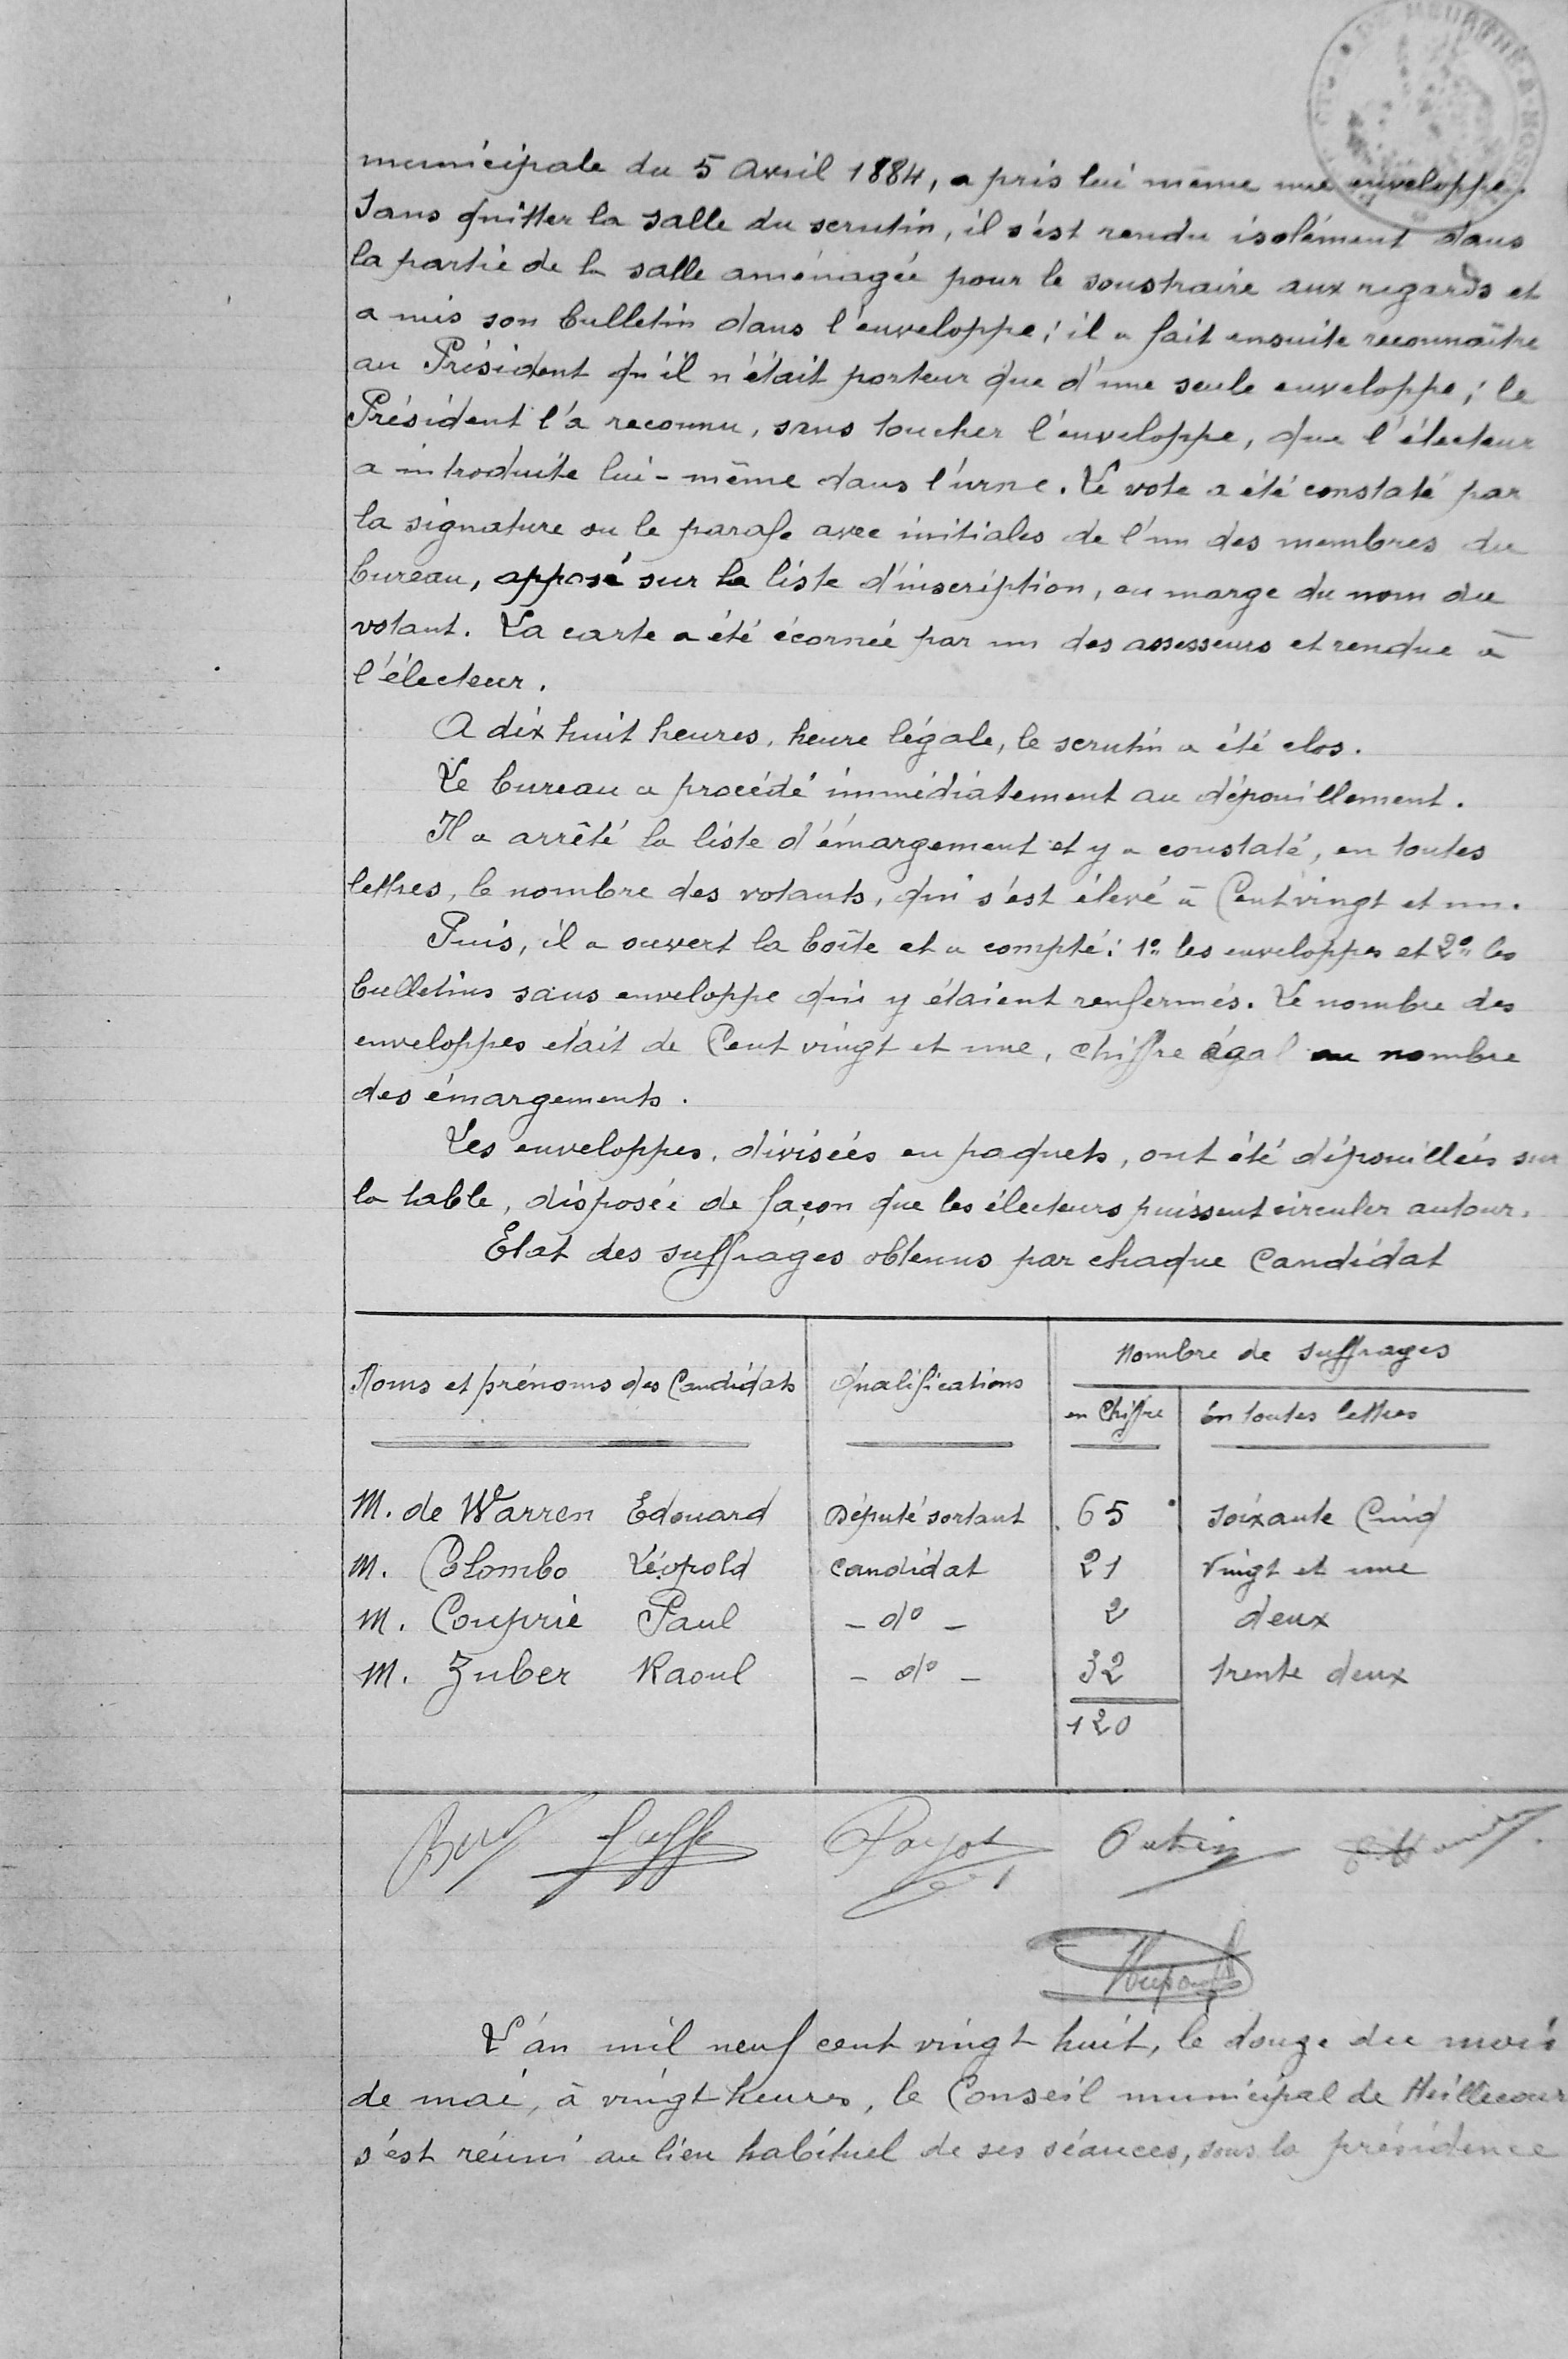 DE MEURTHE-&-MOSELLE
municipale du 5 Avril 1884, a pris lui même une enveloppe.
Sans quitter la salle du scrutin, il s'est rendu isolément dans
la partie de la salle aménagée pour le soustraire aux regards et
a mis son bulletin dans l'enveloppe; il a fait ensuite reconnaître
au Président qu'il n'était porteur que d'une seule enveloppe; le
Président l'a reconnu, sans toucher l'enveloppe, que l'électeur
a introduite lui-même dans l'urne. Le vote a été constaté par
la signature ou le parafe avec initiales de l'un des membres du
bureau, apposé sur la liste d'inscription, en marge du nom du
votant. La carte a été écornée par un des assesseurs et rendue à
l'électeur.
A dix huit heures, heure légale, le scrutin a été clos.
Le bureau a procédé immédiatement au dépouillement.
Il a arrêté la liste d'émargement et y a constaté, en toutes
lettres, le nombre des votants, qui s'est élevé à Cent vingt et un.
Puis, il a ouvert la boîte et a compté: 1° les enveloppes et 2° les
bulletins sans enveloppe qui y étaient renfermés. Le nombre des
enveloppes était de Cent vingt et une, chiffre égal au nombre
des émargements.
Les enveloppes, divisées en paquets, ont été dépouillées sur
la table, disposée de façon que les électeurs puissent circuler autour.
Etat des suffrages obtenus par chaque Candidat
Noms et prénoms des Candidats Qualifications Nombre de suffrages
en Chiffre En toutes lettres
M. de Warren Edouard Député sortant 65 Soixante Cinq
M. Colombo Léopold Candidat 21 Vingt et une
M. Couprié Paul - d° - 2 deux
M. Zuber Raoul - d° - 32 trente deux
120
Payot
L'an mil neuf cent vingt huit, le douze du mois
de mai, à vingt heures, le Conseil municipal de Heillecour
s'est réuni au lieu habituel de ses séances, sous la présidence